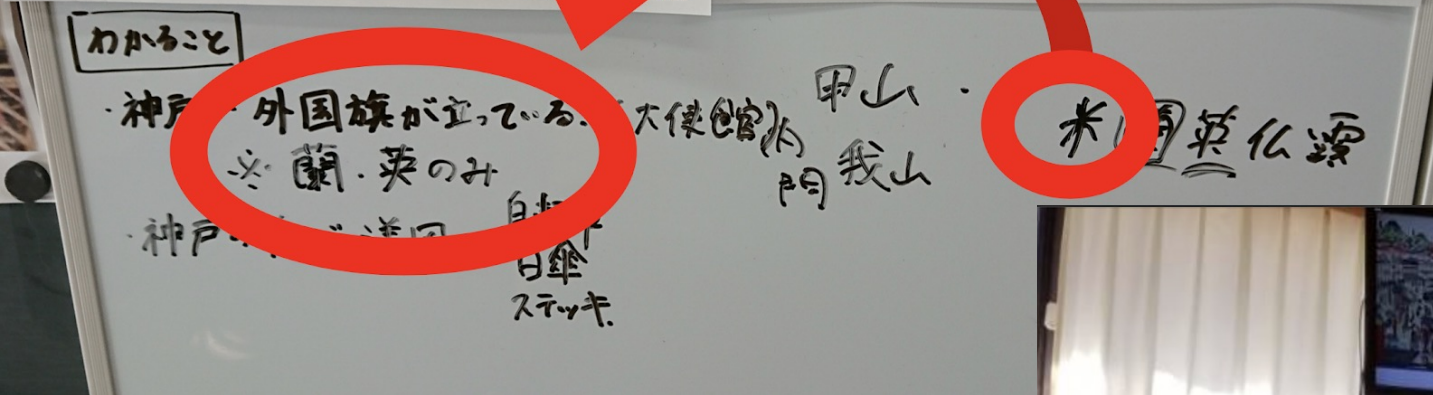 わかること
・神戸 外国旗が立っている。(大使館)
※ 蘭・英のみ
・神戸
白傘
ステッキ
甲山・
我山
米 英仏露